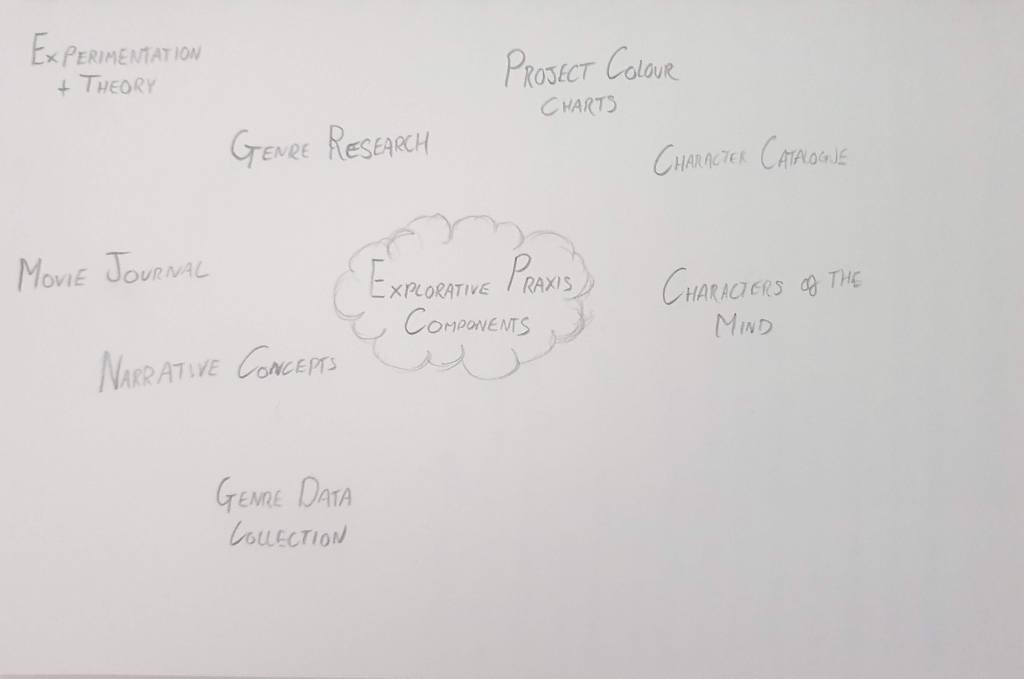 Experimentation
+ Theory
Project Colour
Charts
Genre Research
Character Catalogue
Movie Journal
Explorative Praxis
Components
Characters of the
Mind
Narrative Concepts
Genre Data
Collection